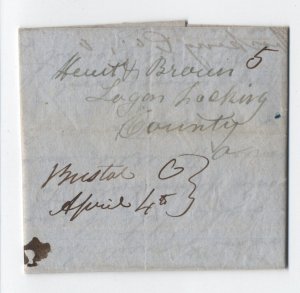 Heut & Brown 5
Logan Hocking
County
O
Bristol O
April 48